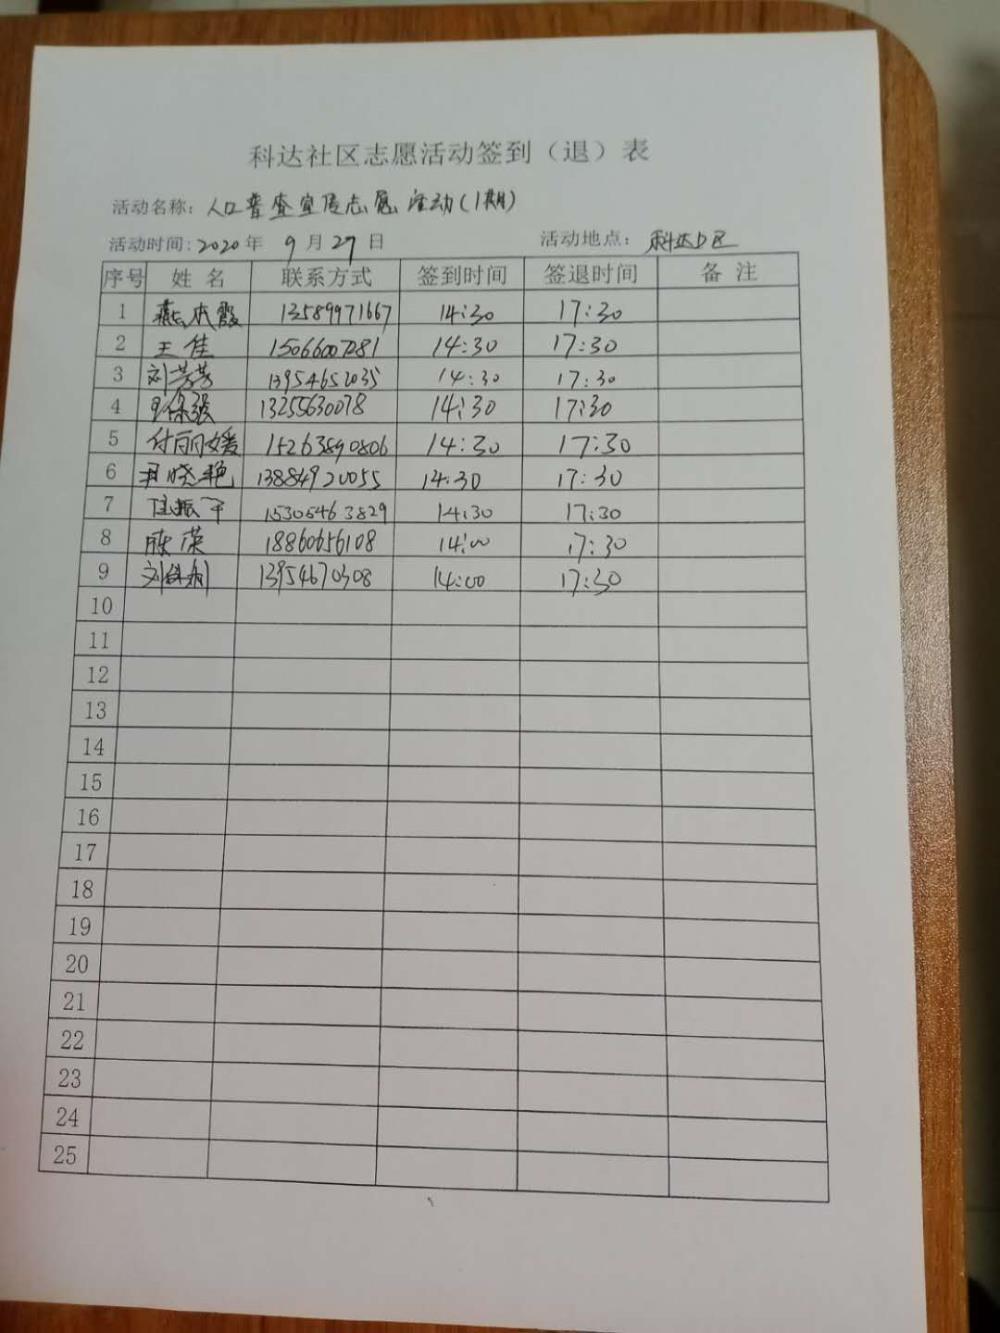 科达社区志愿活动签到（退）表
活动名称：人口普查宣传志愿活动(1期)
活动时间:2020年 9月27日 活动地点：科达小区
序号 姓名 联系方式 签到时间 签退时间 备注
1 燕杰霞 13589971667 14:30 17:30
2 王佳 15066007281 14:30 17:30
3 刘芳芳 13954652035 14:30 17:30
4 13255630078 14:30 17:30
5 付丽媛 15263890806 14:30 17:30
6 尹晓艳 13884920055 14:30 17:30
7 15305463829 14:30 17:30
8 陈荣 18860656108 14:00 17:30
9 刘 13954670308 14:00 17:30
10
11
12
13
14
15
16
17
18
19
20
21
22
23
24
25